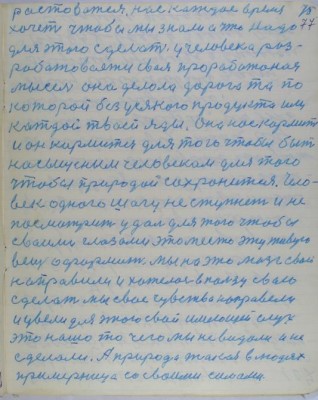 растоватся, нас каждое время 75
хочет чтобы мы знали что надо 77
для этого сделать. у человека раз-
работовояжи свая проработаная
мысля она делола дорога та по
которой без усякого продукта или
каждой твоей яды. Она нас кармит
и он кармится для того чтобы быт
насыщеным человекам для того
чтобы природай сохронится. Чело-
век одного шагу не ступнет и не
посмотрит удал для того чтобы
своими глазами это место эту живую
вещ оформит. мы на это мозг свой
направили и хотелось ползу сваю
сделат мы свое чувства направели
и цвели для этого свай имеющий слух
это нашо то чего мы не видали и не
сделали. А природа жакая в людях
примерница со своими силами.